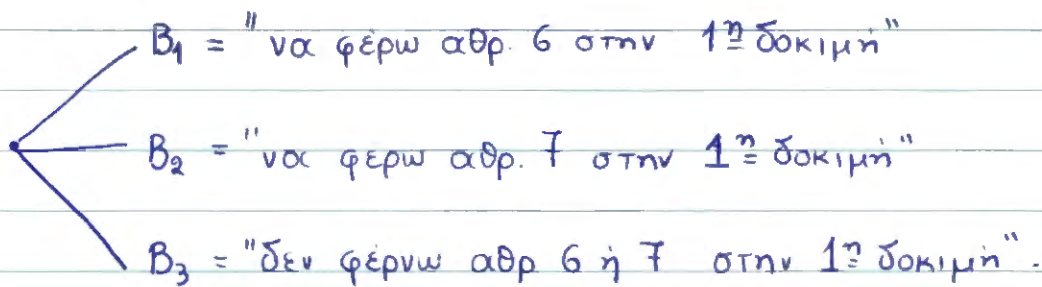 B₁ = "να φέρω αθρ. 6 στην 1η δοκιμή"
B₂ = "να φέρω αθρ. 7 στην 1η δοκιμή"
B₃ = "δεν φέρνω αθρ 6 ή 7 στην 1η δοκιμή".